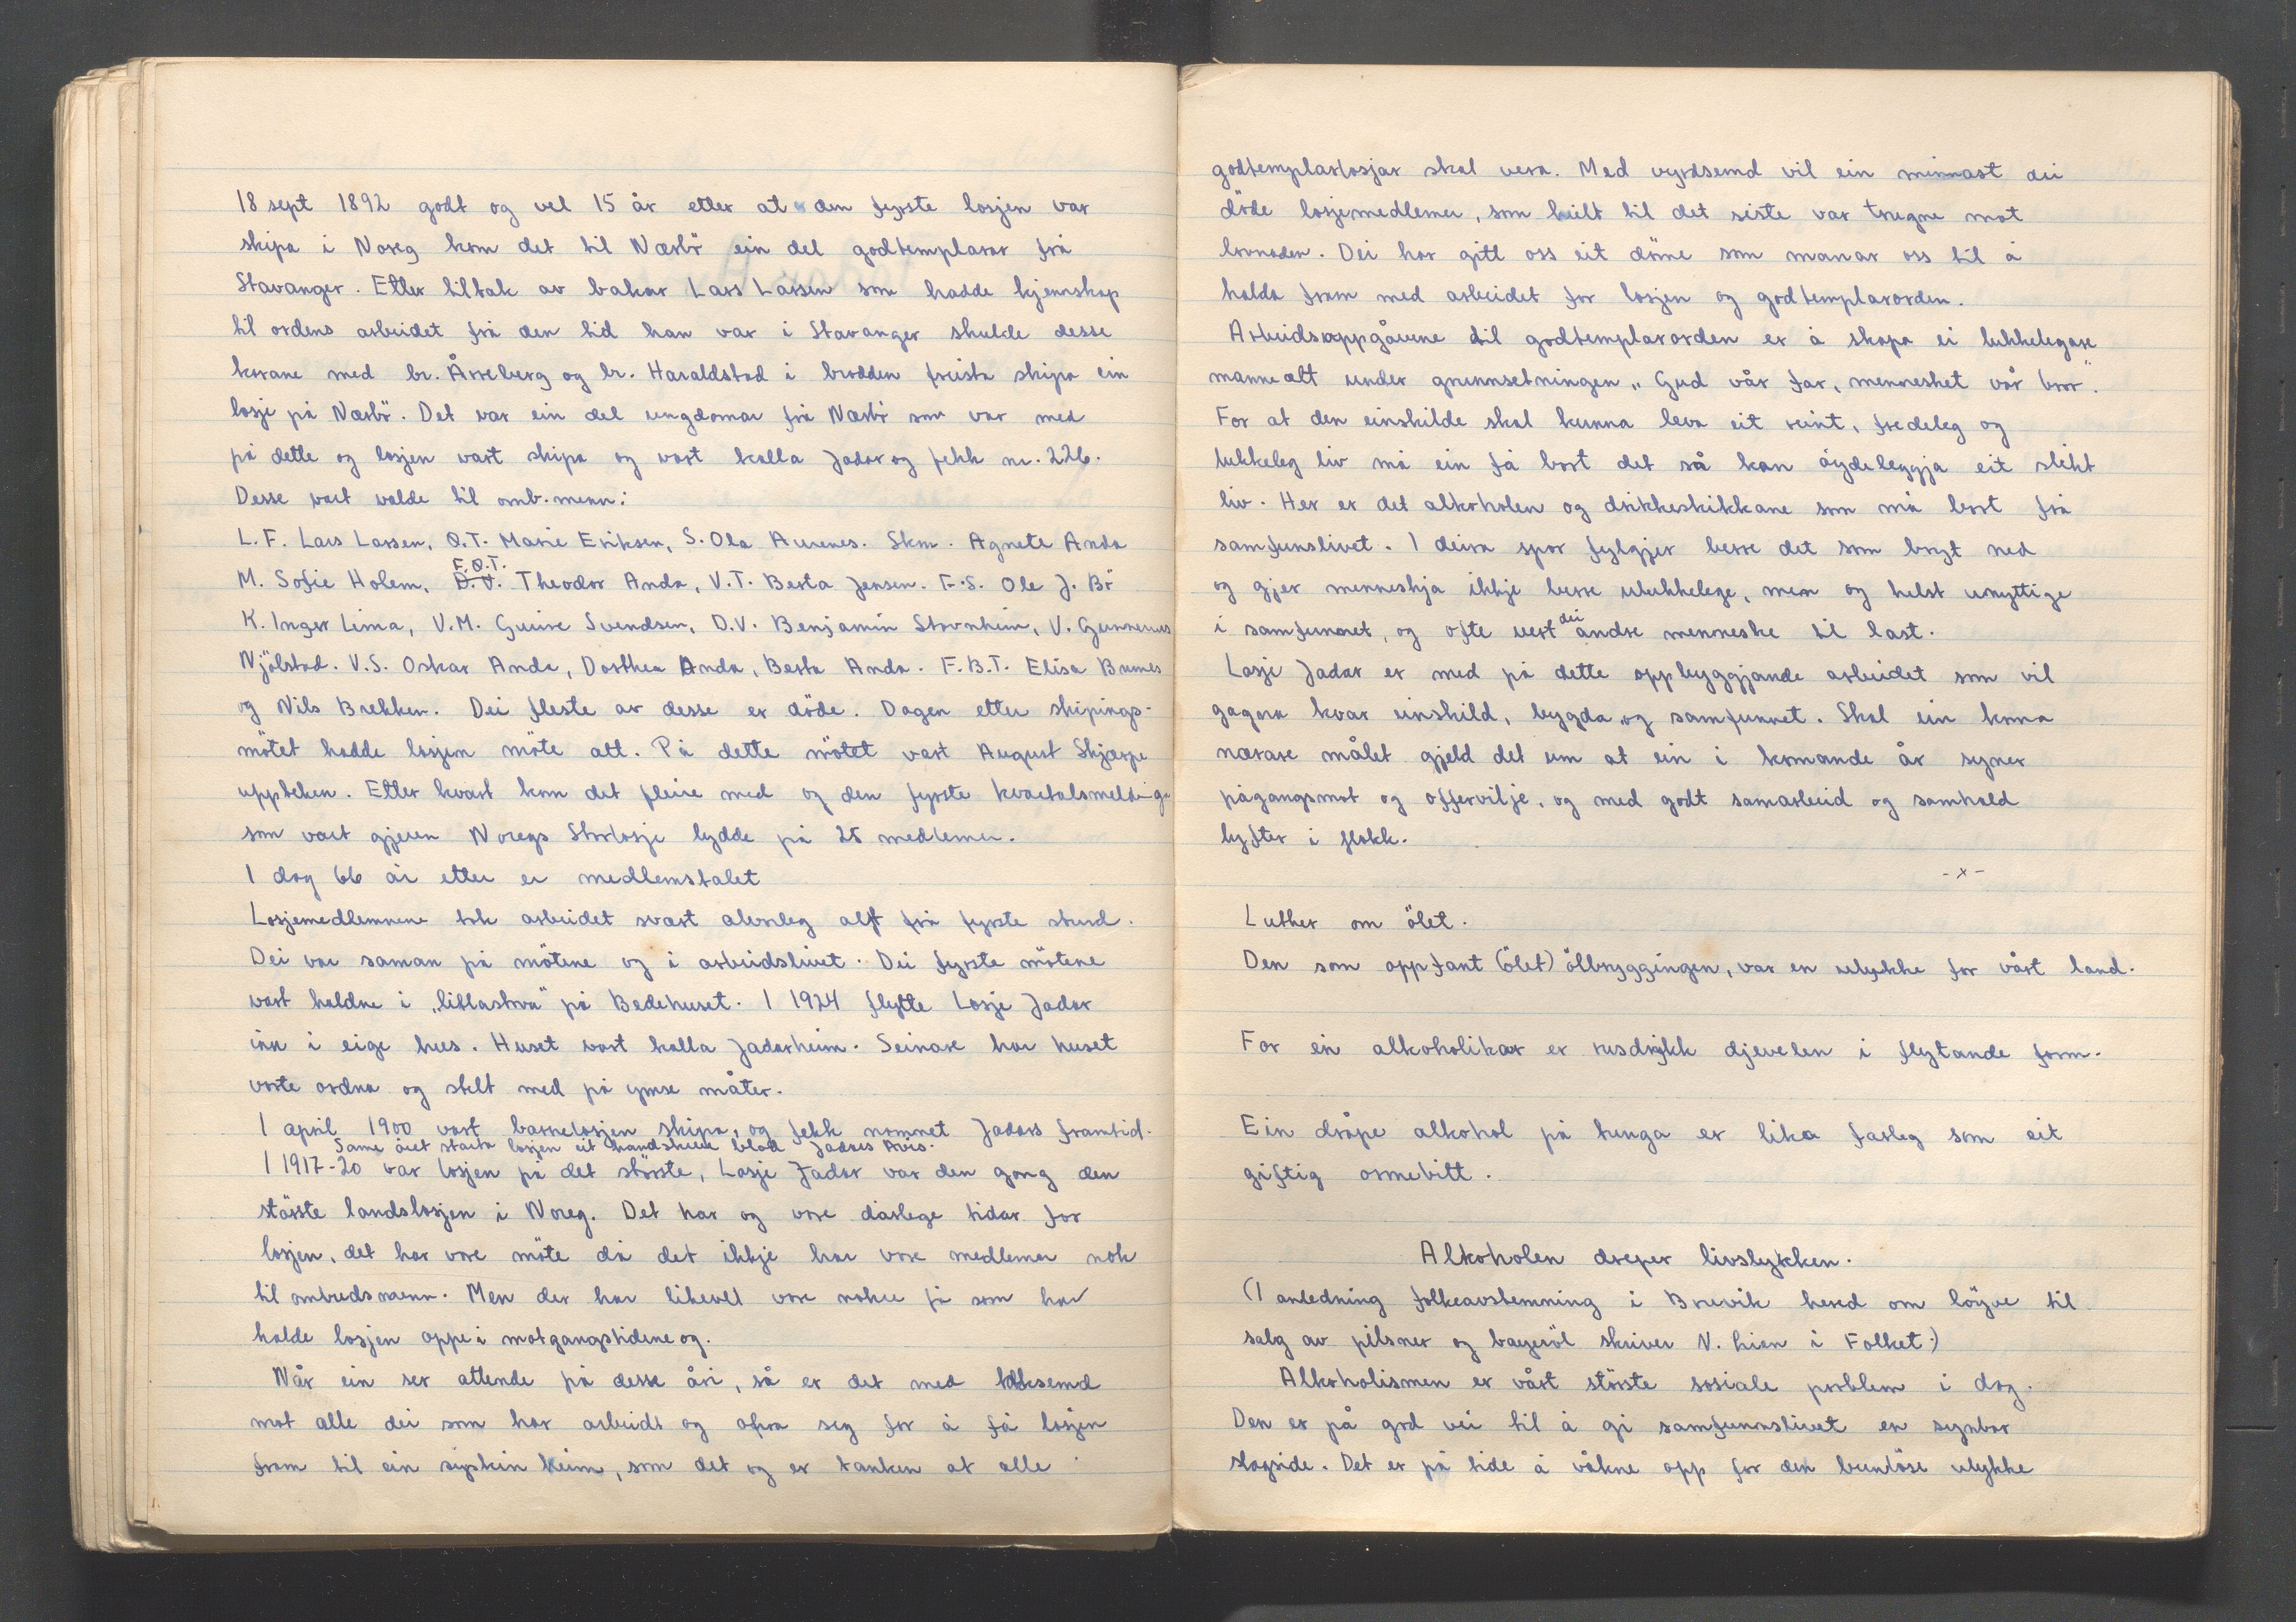 18 sept 1892 godt og vel 15 år etter at den fyrste losjen var
skipa i Noreg kom det til Nærbö ein del godtemplarar frå
Stavanger. Etter tiltak av bakar Lars Larsen som hadde kjennskap
til ordens arbeidet frå den tid han var i Stavanger skulde desse
karane med br. Årreberg og br. Haraldstad i brodden freista skipa ein
losje på Nærbö. Det var ein del ungdomar frå Nærbö som var med
på dette og losjen vart skipa og vart kalla Jadar og fekk nr. 226.
Desse vart valde til omb.menn:
L.F. Lars Larsen, Ø.T. Marie Eriksen, S. Ola Aurenes. Skm. Agnete Anda
F.Ø.T.
M. Sofie Holem, D.J. Theodor Anda, V.T. Berta Jensen. F.S. Ole J. Bö
K. Inger Lima, V.M. Guire Svendsen, D.V. Benjamin Stavnheim, V. Gunnenus
Njölstad. V.S. Oskar Anda, Dorthea Anda, Berta Anda. F.B.T. Elisa Brunes
og Nils Brekken. Dei fleste av desse er döde. Dagen etter skipings-
mötet hadde losjen möte att. På dette mötet vart August Skjærpe
uppteken. Etter kvart kom det fleire med og den fyrste kvartalsmeldinga
som vart gjeven Noregs Storlosje lydde på 25 medlemer.
I dag 66 år etter er medlemstalet
Losjemedlemnene tok arbeidet svært alvorleg alt frå fyrste stund.
Dei var saman på mötene og i arbeidslivet. Dei fyrste mötene
vart haldne i „litlastova" på Bedehuset. I 1924 flytte Losje Jadar
inn i eige hus. Huset vart kalla Jadarheim. Seinare har huset
vorte ordna og stelt med på ymse måter.
I april 1900 vart barnelosjen skipa, og fekk namnet Jadars framtid.
Same året starta losjen eit handskreve blad Jadars Avis.
I 1917-20 var losjen på det största, Losje Jadar var den gong den
störste landslosjen i Noreg. Det har og vore dårlege tidar for
losjen, det har vore möte då det ikkje har vore medlemer nok
til ombudsmenn. Men der har likevel vore nokre få som har
halde losjen oppe i motgangstidene og.
Når ein ser attende på desse åri, så er det med takksemd
mot alle dei som har arbeidt og ofra seg for å få losjen
fram til ein sysken heim, som det og er tanken at alle
godtemplarlosjar skal vera. Med vyrdsemd vil ein minnast dei
döde losjemedlemer, som heilt til det siste var trugne mot
lovnaden. Dei har gitt oss eit döme som manar oss til å
halda fram med arbeidet for losjen og godtemplarorden.
Arbeidsoppgåvene til godtemplarorden er å skapa ei lukkelegare
manneætt under grunnsetningen „Gud vår far, menneshet vår bror".
For at den einskilde skal kunna leva eit reint, fredeleg og
lukkeleg liv må ein få bort det så kan öydeleggja eit slikt
liv. Her er det alkoholen og drikkeskikkane som må bort frå
samfunslivet. I deira spor fylgjer berre det som bryt ned
og gjer menneskja ikkje berre ulukkelege, men og helst unyttige
i samfunnet, og ofte vert dei andre menneske til last.
Losje Jadar er med på dette oppbyggjande arbeidet som vil
gagna kvar einskild, bygda og samfunnet. Skal ein koma
nærare målet gjeld det um at ein i komande år syner
pågangsmot og offervilje, og med godt samarbeid og samhald
lyfter i flokk.
-x-
Luther om ölet.
Den som oppfant (ölet) ölbryggingen, var en ulykke for vårt land.
For ein alkoholikar er rusdrykk djevelen i flytande form.
Ein dråpe alkohol på tunga er lika farleg som eit
giftig ormebitt.
Alkoholen dreper livslykken.
(I anledning folkeavstemning i Brevik hered om löyve til
salg av pilsner og bayeröl skriver N. Lien i Folket.)
Alkoholismen er vårt störste sosiale problem i dag.
Den er på god vei til å gi samfunnslivet en synbar
slagside. Det er på tide å våkne opp for den bunnlöse ulykke